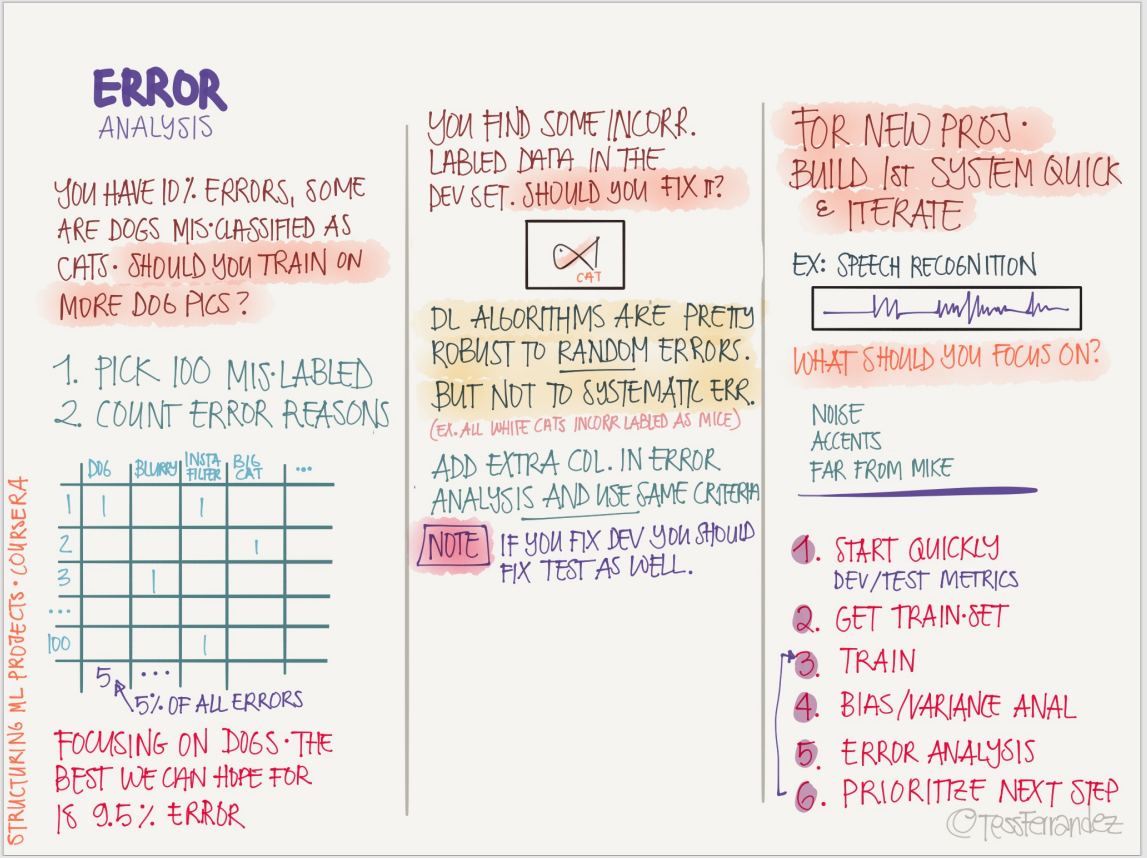 ERROR
ANALYSIS
YOU HAVE 10% ERRORS, SOME
ARE DOGS MIS·CLASSIFIED AS
CATS· SHOULD YOU TRAIN ON
MORE DOG PICS?
1. PICK 100 MIS·LABLED
2. COUNT ERROR REASONS
DOG BLURRY INSTA FILTER BIG CAT ...
1 1 1
2 1
3 1
...
100 1
5 ...
5% OF ALL ERRORS
FOCUSING ON DOGS·THE
BEST WE CAN HOPE FOR
IS 9.5% ERROR
STRUCTURING ML PROJECTS·COURSERA
YOU FIND SOME INCORR.
LABLED DATA IN THE
DEV SET. SHOULD YOU FIX IT?
CAT
DL ALGORITHMS ARE PRETTY
ROBUST TO RANDOM ERRORS.
BUT NOT TO SYSTEMATIC ERR.
(EX. ALL WHITE CATS INCORR LABLED AS MICE)
ADD EXTRA COL. IN ERROR
ANALYSIS AND USE SAME CRITERIA
NOTE IF YOU FIX DEV YOU SHOULD
FIX TEST AS WELL.
FOR NEW PROJ·
BUILD 1st SYSTEM QUICK
& ITERATE
EX: SPEECH RECOGNITION
WHAT SHOULD YOU FOCUS ON?
NOISE
ACCENTS
FAR FROM MIKE
1. START QUICKLY
DEV/TEST METRICS
2. GET TRAIN·SET
3. TRAIN
4. BIAS/VARIANCE ANAL
5. ERROR ANALYSIS
6. PRIORITIZE NEXT STEP
©TessFerrandez